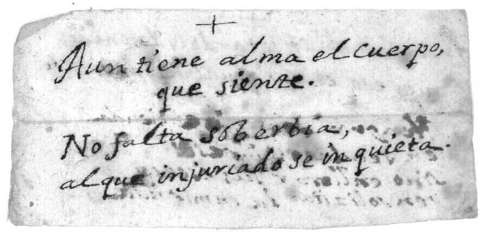 +
Aun tiene alma el cuerpo,
que siente.
No falta soberbia,
al que injuriado se inquieta.